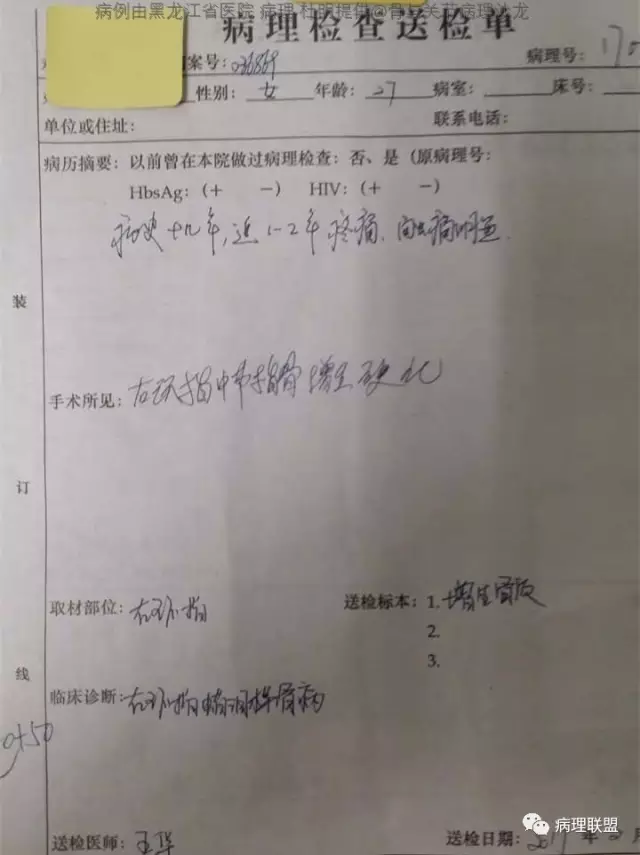 病例由黑龙江省医院 病理 杜明提供@骨
病理检查送检单
案号: 036869 病理号: 170
性别: 女 年龄: 27 病室: 床号:
单位或住址: 联系电话:
病历摘要: 以前曾在本院做过病理检查: 否、是 (原病理号:
HbsAg: (+ -) HIV: (+ -)
病史十九年, 近1-2年疼痛, 向心痛明显.
装
手术所见: 右环指中节指骨增生硬化
订
取材部位: 右环指 送检标本: 1. 增生骨质
2.
3.
线
临床诊断: 右环指蜡泪样骨病
送检医师: 王华 送检日期: 2017年 月
病理联盟